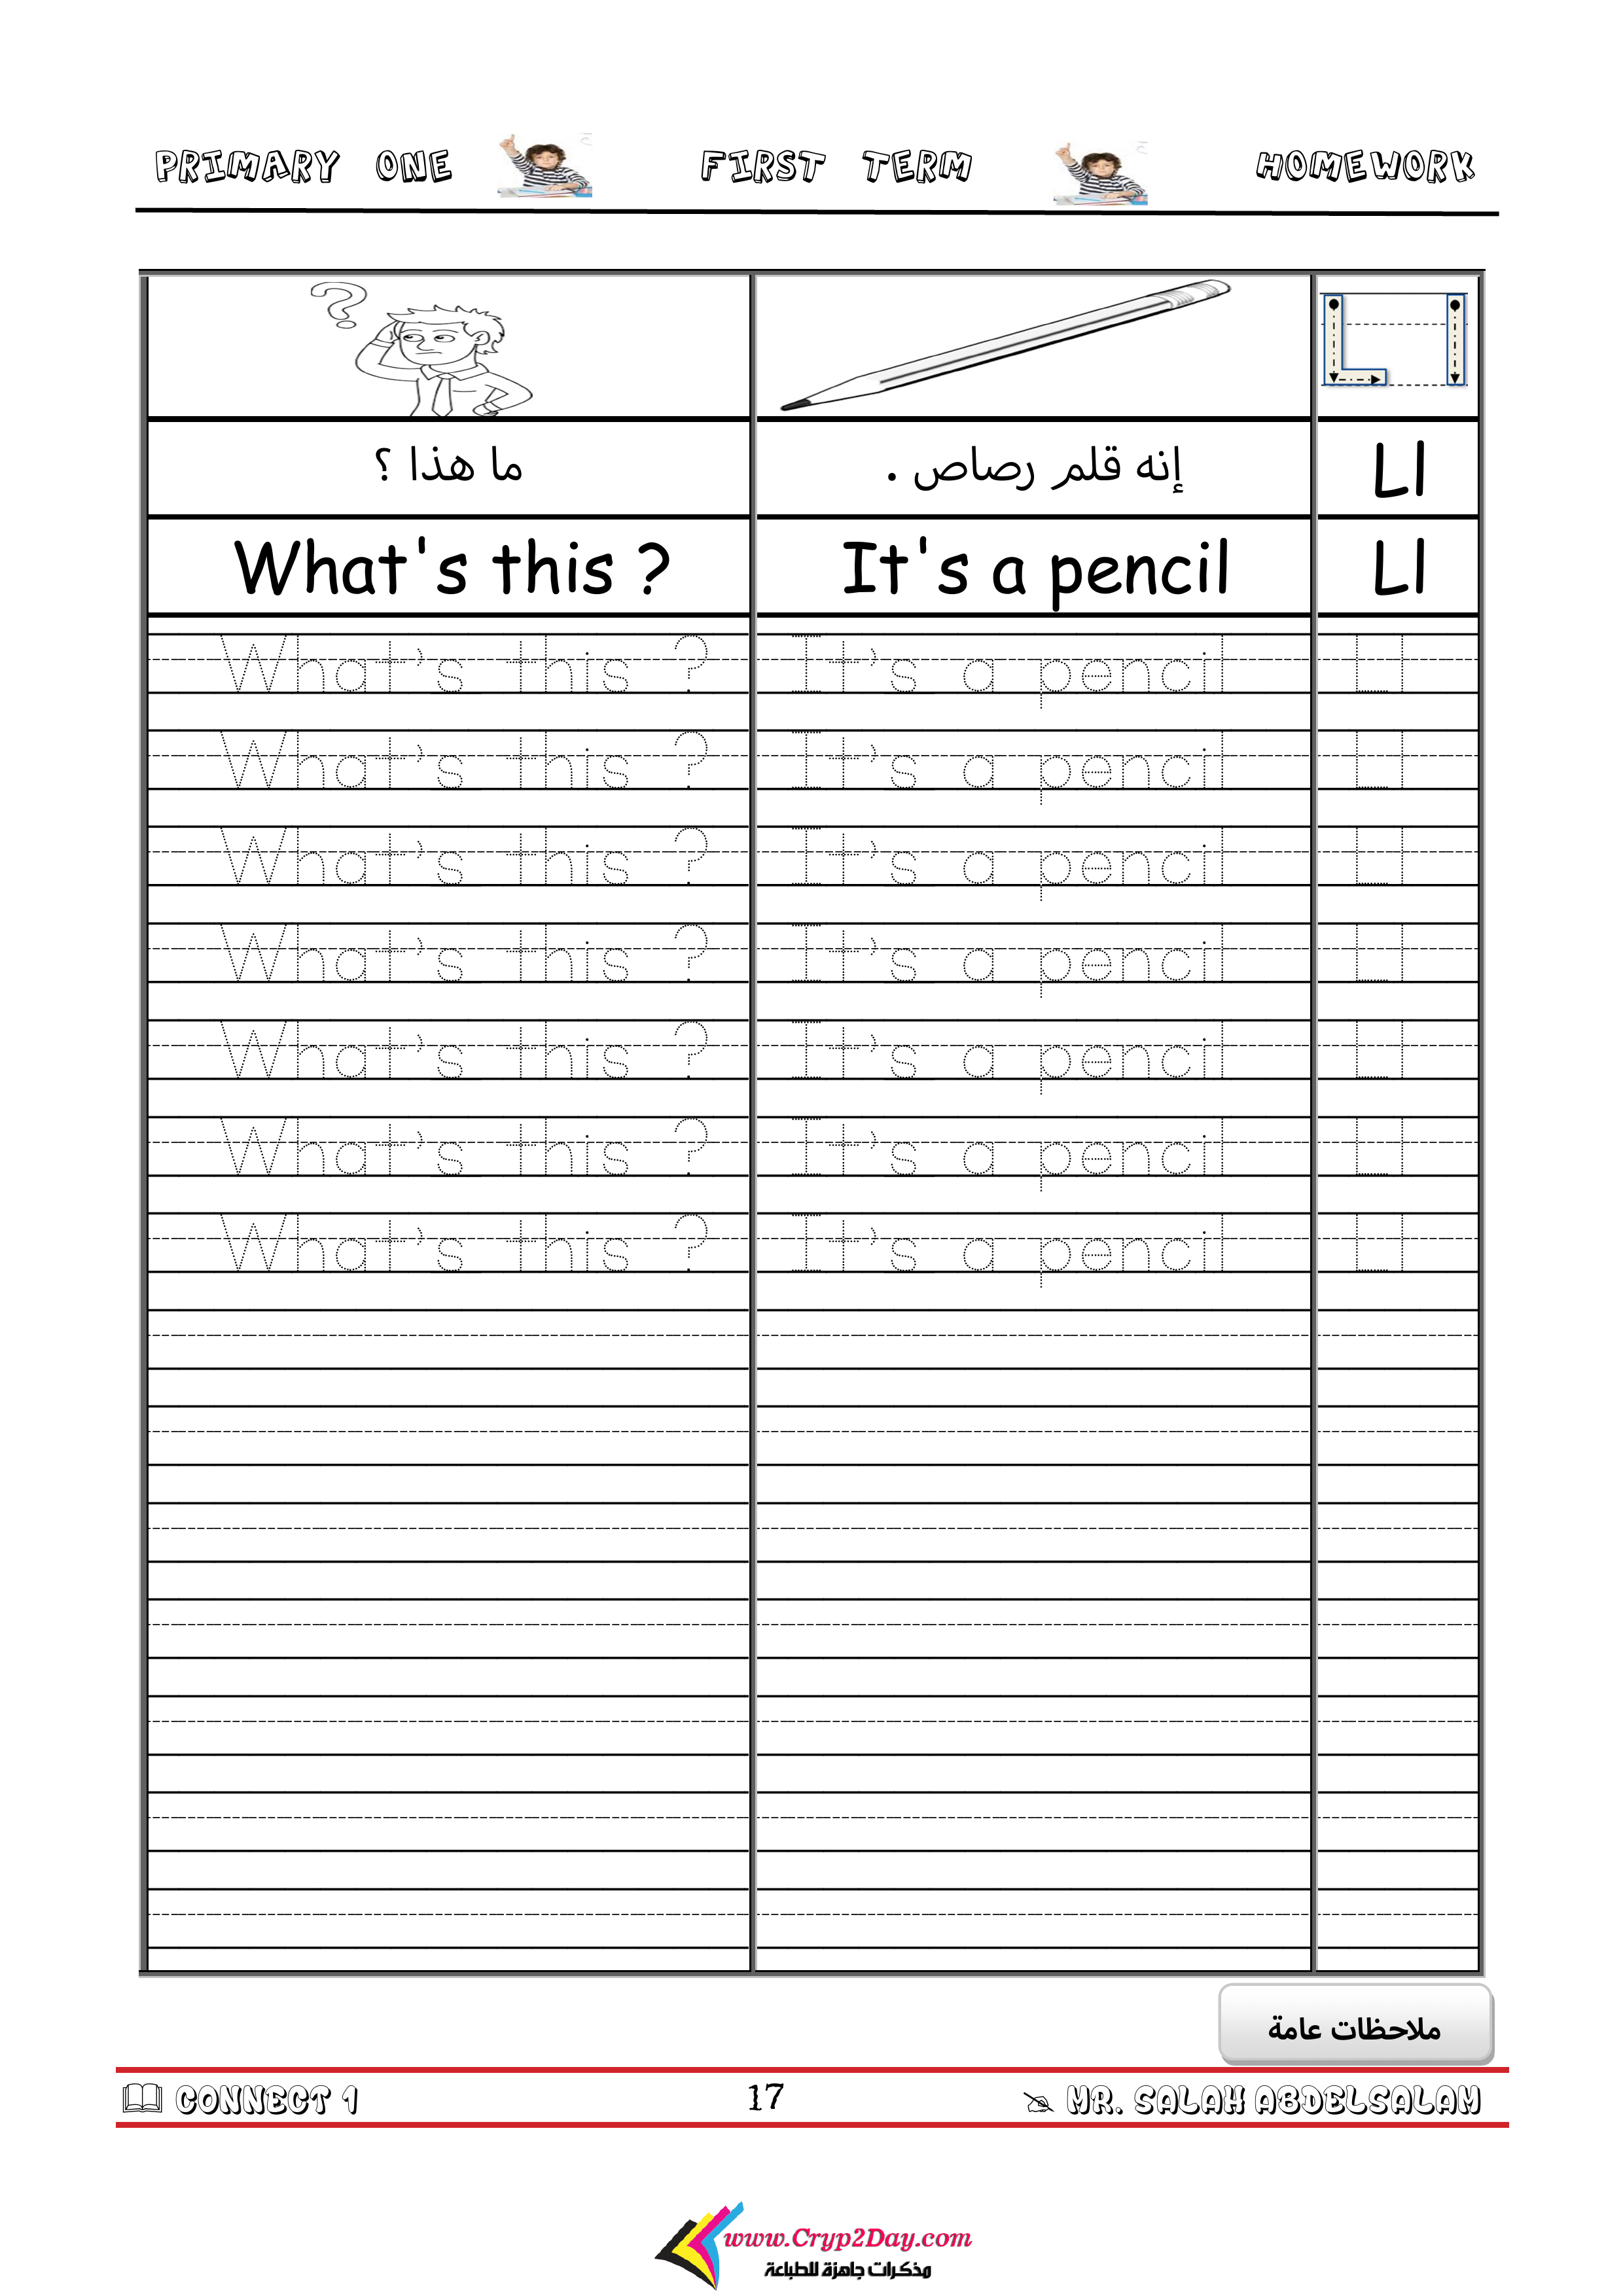 PRIMARY ONE FIRST TERM HOMEWORK
?
ما هذا ؟ إنه قلم رصاص . Ll
What's this ? It's a pencil Ll
What's this ? It's a pencil Ll
What's this ? It's a pencil Ll
What's this ? It's a pencil Ll
What's this ? It's a pencil Ll
What's this ? It's a pencil Ll
What's this ? It's a pencil Ll
What's this ? It's a pencil Ll
ملاحظات عامة
CONNECT 1 17 MR. SALAH ABDELSALAM
www.Cryp2Day.com
مذكرات جاهزة للطباعة